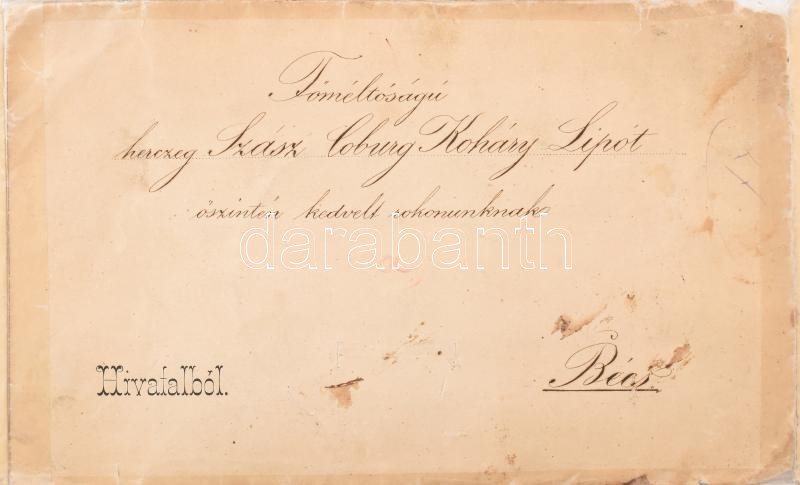 Főméltóságú
herczeg Szász Coburg Koháry Lipót
őszintén kedvelt rokonunknak
darabanth
Hivatalból.
Bécs.